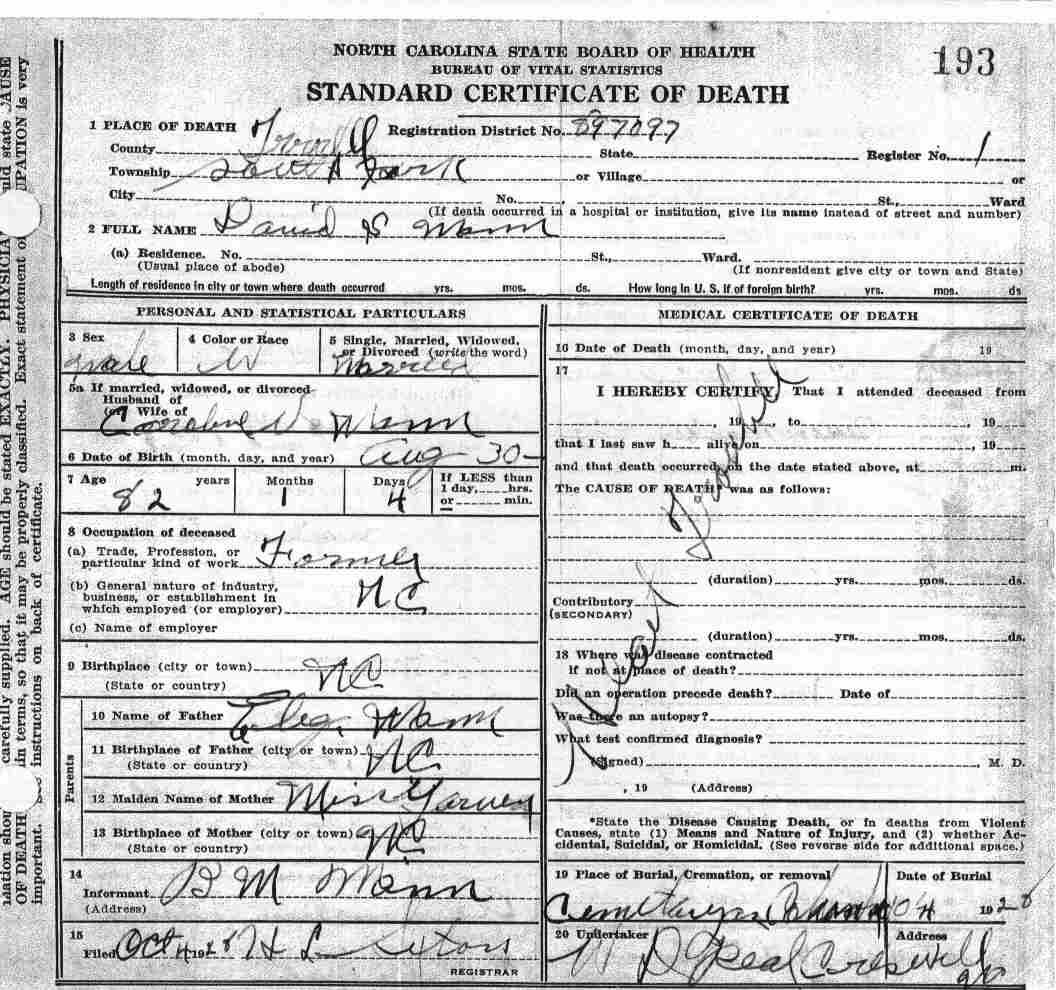 193
NORTH CAROLINA STATE BOARD OF HEALTH
BUREAU OF VITAL STATISTICS
STANDARD CERTIFICATE OF DEATH
1 PLACE OF DEATH Registration District No. 897097
County Tyrrell State Register No. 1
Township South Fork or Village or
City No. St., Ward
(If death occurred in a hospital or institution, give its name instead of street and number)
2 FULL NAME David S Mann
(a) Residence. No. St., Ward.
(Usual place of abode) (If nonresident give city or town and State)
Length of residence in city or town where death occurred yrs. mos. ds. How long in U. S. if of foreign birth? yrs. mos. ds
PERSONAL AND STATISTICAL PARTICULARS
3 Sex 4 Color or Race 5 Single, Married, Widowed,
or Divorced (write the word)
male W Married
5a If married, widowed, or divorced
Husband of
(or) Wife of
Caroline Mann
6 Date of Birth (month, day, and year) Aug 30
7 Age years Months Days If LESS than
1 day, hrs.
or min.
82 1 4
8 Occupation of deceased
(a) Trade, Profession, or
particular kind of work Farmer
(b) General nature of industry,
business, or establishment in
which employed (or employer) NC
(c) Name of employer
9 Birthplace (city or town)
(State or country) NC
Parents
10 Name of Father Mann
11 Birthplace of Father (city or town) NC
(State or country)
12 Maiden Name of Mother Miss
13 Birthplace of Mother (city or town) NC
(State or country)
14
Informant B M Mann
(Address)
15
Filed Oct 4 1928 H L Sexton
REGISTRAR
MEDICAL CERTIFICATE OF DEATH
16 Date of Death (month, day, and year) 19
17
I HEREBY CERTIFY, That I attended deceased from
, 19 , to , 19
that I last saw h alive on , 19
and that death occurred, on the date stated above, at m.
The CAUSE OF DEATH* was as follows:
Heart Trouble
(duration) yrs. mos. ds.
Contributory
(SECONDARY)
(duration) yrs. mos. ds.
18 Where was disease contracted
if not at place of death?
Did an operation precede death? Date of
Was there an autopsy?
What test confirmed diagnosis?
(Signed) , M. D.
, 19 (Address)
*State the Disease Causing Death, or in deaths from Violent
Causes, state (1) Means and Nature of Injury, and (2) whether Ac-
cidental, Suicidal, or Homicidal. (See reverse side for additional space.)
19 Place of Burial, Cremation, or removal Date of Burial
4 1928
20 Undertaker Address
W D Creswell
NC
carefully supplied. AGE should be stated EXACTLY.
in terms, so that it may be properly classified. Exact statement of
UPATION is very
OF DEATH
important. instructions on back of certificate.